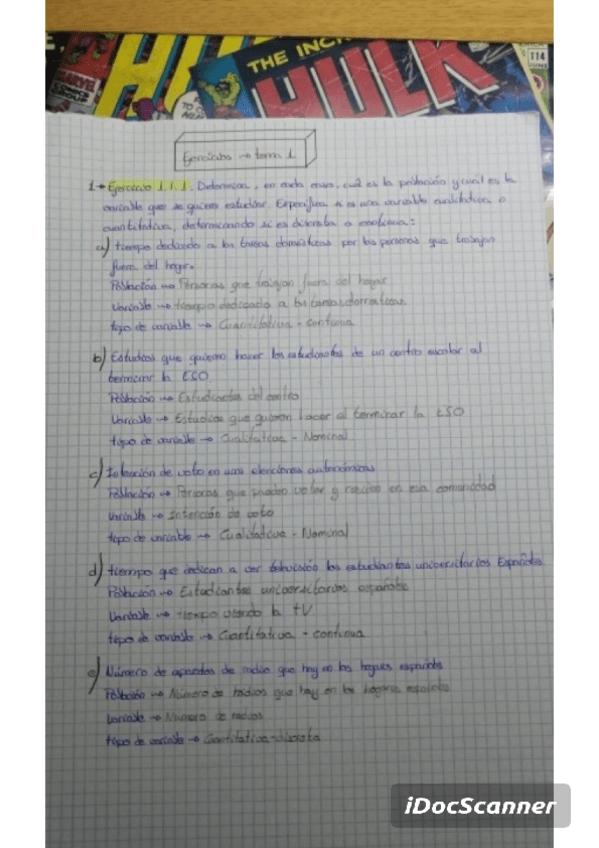 THE INC
HULK
114
JUNE
MARVEL
Ejercicios → tema 1
1.→ Ejercicio 1.1.1. Determinar, en cada caso, cuál es la población y cuál es la
variable que se quiere estudiar. Especifica si es una variable cualitativa o
cuantitativa, determinando si es discreta o continua:
a) tiempo dedicado a las tareas domésticas por las personas que trabajan
fuera del hogar.
Población → Personas que trabajan fuera del hogar
Variable → tiempo dedicado a las tareas domésticas
tipo de variable → Cuantitativa - continua
b) Estudios que quieren hacer los estudiantes de un centro escolar al
terminar la ESO.
Población → Estudiantes del centro
Variable → Estudios que quieran hacer al terminar la ESO
tipo de variable → Cualitativa - Nominal
c) Intención de voto en unas elecciones autonómicas
Población → Personas que pueden votar y residen en esa comunidad
Variable → Intención de voto
tipo de variable → Cualitativa - Nominal
d) tiempo que dedican a ver televisión los estudiantes universitarios Españoles.
Población → Estudiantes universitarios españoles
Variable → tiempo viendo la tV
tipo de variable → Cuantitativa - continua
e) Número de aparatos de radio que hay en los hogares españoles
Población → Número de radios que hay en los hogares españoles
Variable → Número de radios
tipo de variable → Cuantitativa - discreta
iDocScanner